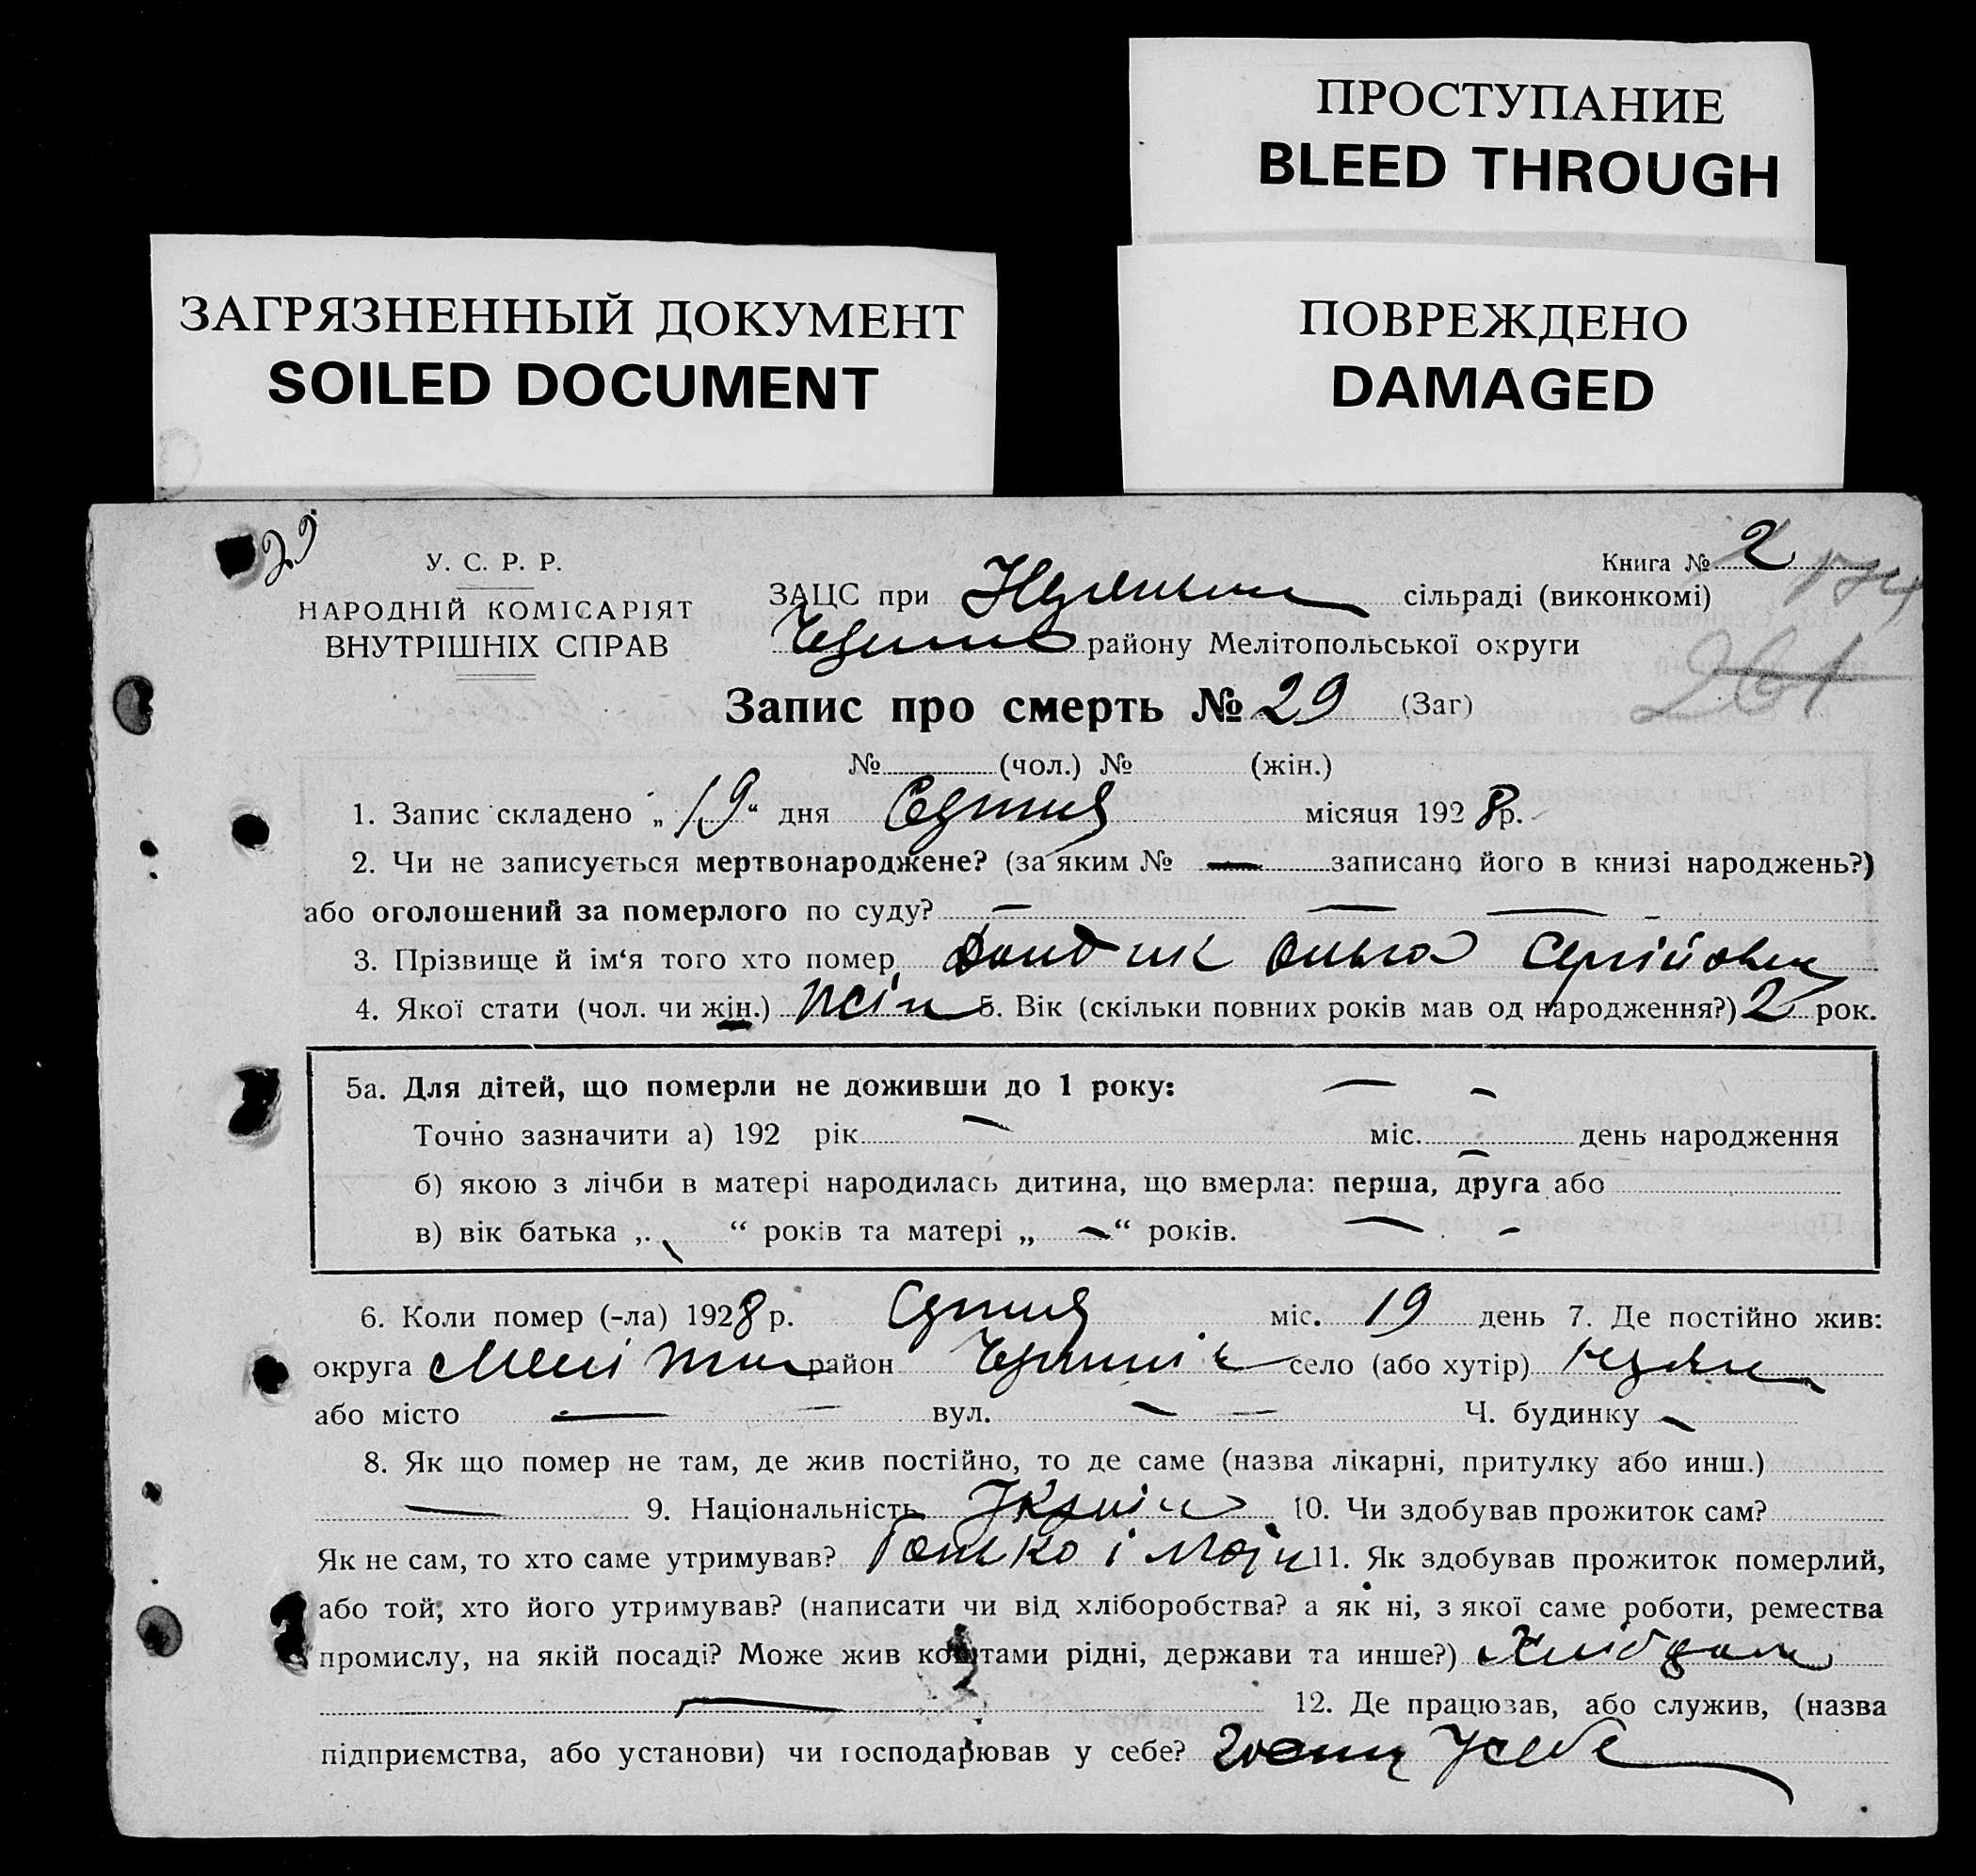 ПРОСТУПАНИЕ
BLEED THROUGH
ЗАГРЯЗНЕННЫЙ ДОКУМЕНТ
SOILED DOCUMENT
ПОВРЕЖДЕНО
DAMAGED
29
У. С. Р. Р.
НАРОДНІЙ КОМІСАРІЯТ
ВНУТРІШНІХ СПРАВ
Книга № 2
ЗАЦС при сільраді (виконкомі)
району Мелітопольської округи
261
Запис про смерть № 29 (Заг)
№ (чол.) № (жін.)
1. Запис складено „19“ дня місяця 1928 р.
2. Чи не записується мертвонароджене? (за яким № — записано його в книзі народжень?)
або оголошений за померлого по суду? — — — -
3. Прізвище й ім‘я того хто помер Ольга
4. Якої стати (чол. чи жін.) жін 5. Вік (скільки повних років мав од народження?) 2 рок.
5а. Для дітей, що померли не доживши до 1 року: — -
Точно зазначити а) 192 рік — міс. день народження
б) якою з лічби в матері народилась дитина, що вмерла: перша, друга або
в) вік батька „ “ років та матері „ — “ років. — -
6. Коли помер (-ла) 1928 р. міс. 19 день 7. Де постійно жив:
округа район село (або хутір)
або місто — — вул. — — Ч. будинку —
8. Як що помер не там, де жив постійно, то де саме (назва лікарні, притулку або инш.)
— 9. Національність 10. Чи здобував прожиток сам?
Як не сам, то хто саме утримував? Батько і 11. Як здобував прожиток померлий,
або той, хто його утримував? (написати чи від хліборобства? а як ні, з якої саме роботи, ремества
промислу, на якій посаді? Може жив коштами рідні, держави та инше?)
— 12. Де працював, або служив, (назва
підприємства, або установи) чи господарював у себе? у себе